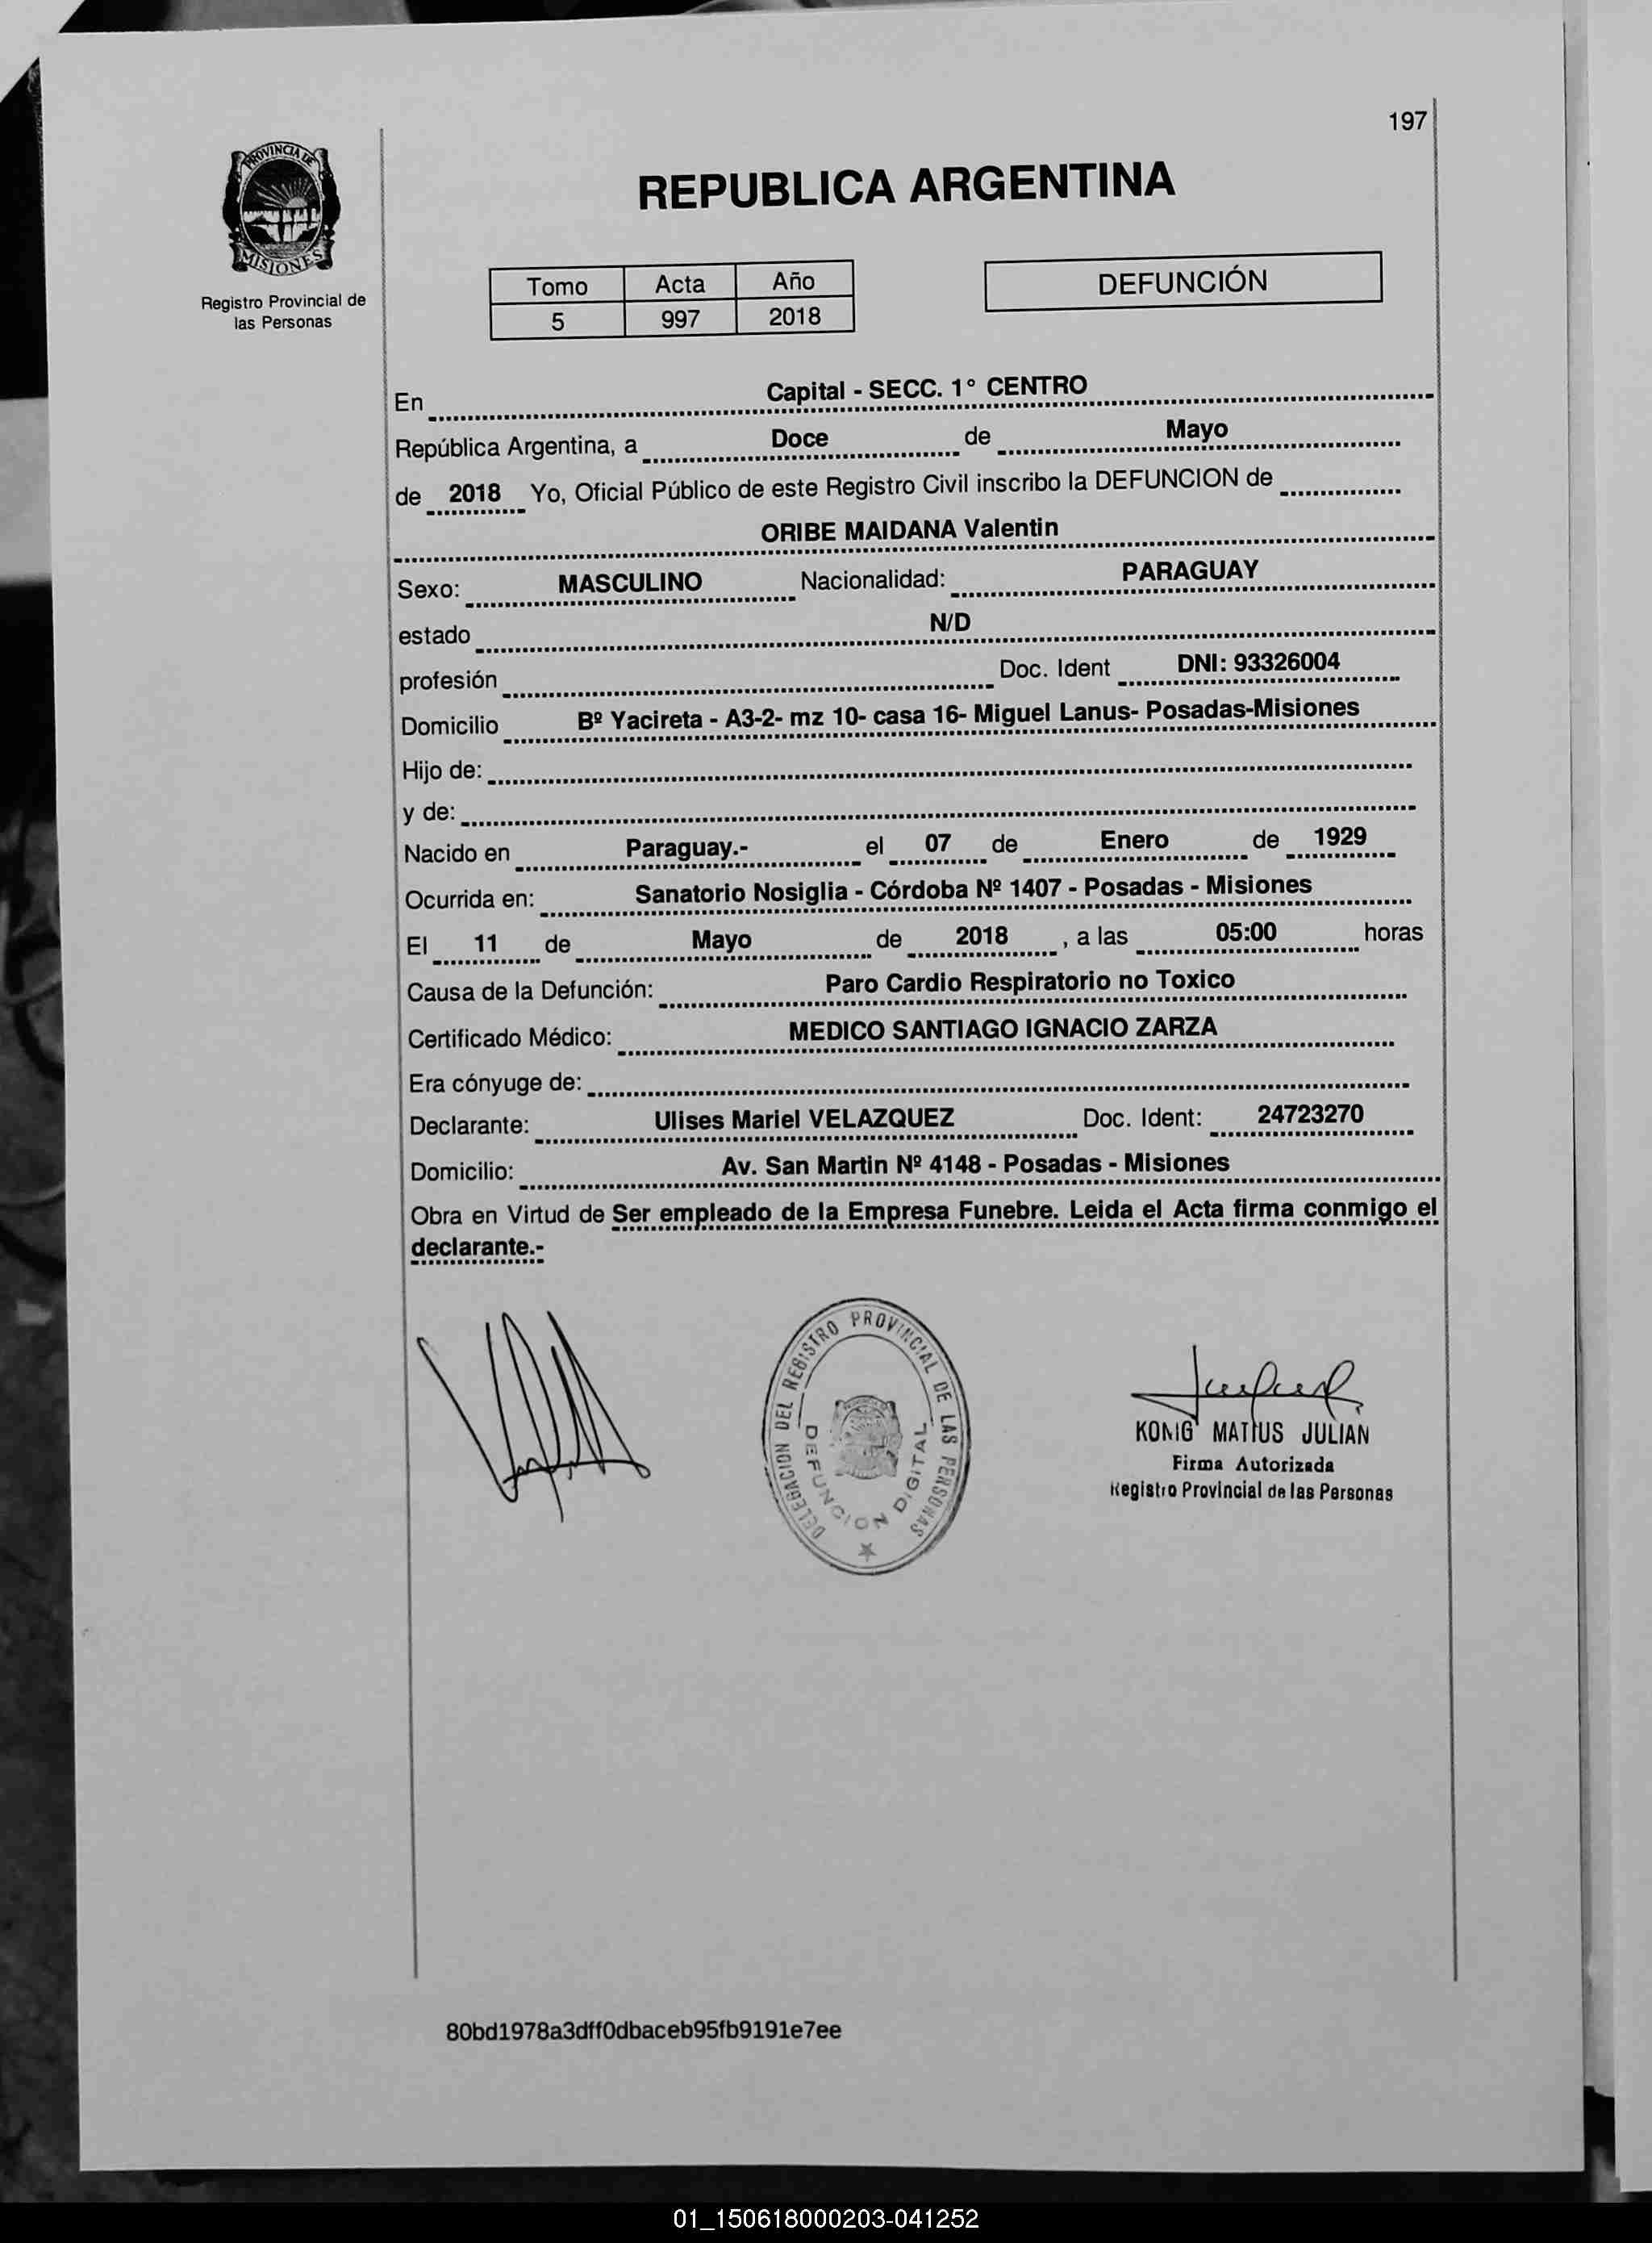 197
PROVINCIA DE
MISIONES
Registro Provincial de
las Personas
REPUBLICA ARGENTINA
Tomo Acta Año
5 997 2018
DEFUNCIÓN
En Capital - SECC. 1° CENTRO
República Argentina, a Doce de Mayo
de 2018 Yo, Oficial Público de este Registro Civil inscribo la DEFUNCION de
ORIBE MAIDANA Valentin
Sexo: MASCULINO Nacionalidad: PARAGUAY
estado N/D
profesión Doc. Ident DNI: 93326004
Domicilio Bº Yacireta - A3-2- mz 10- casa 16- Miguel Lanus- Posadas-Misiones
Hijo de:
y de:
Nacido en Paraguay.- el 07 de Enero de 1929
Ocurrida en: Sanatorio Nosiglia - Córdoba Nº 1407 - Posadas - Misiones
El 11 de Mayo de 2018 , a las 05:00 horas
Causa de la Defunción: Paro Cardio Respiratorio no Toxico
Certificado Médico: MEDICO SANTIAGO IGNACIO ZARZA
Era cónyuge de:
Declarante: Ulises Mariel VELAZQUEZ Doc. Ident: 24723270
Domicilio: Av. San Martin Nº 4148 - Posadas - Misiones
Obra en Virtud de Ser empleado de la Empresa Funebre. Leida el Acta firma conmigo el
declarante.-
DELEGACION DEL REGISTRO PROVINCIAL DE LAS PERSONAS
DEFUNCION DIGITAL
KONIG MATIUS JULIAN
Firma Autorizada
Registro Provincial de las Personas
80bd1978a3dff0dbaceb95fb9191e7ee
01_150618000203-041252